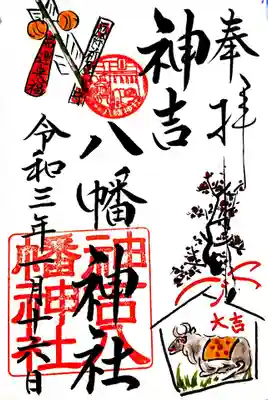 奉拝
神吉
八幡神社
令和三年一月廿六日
神吉八
幡神社
大吉